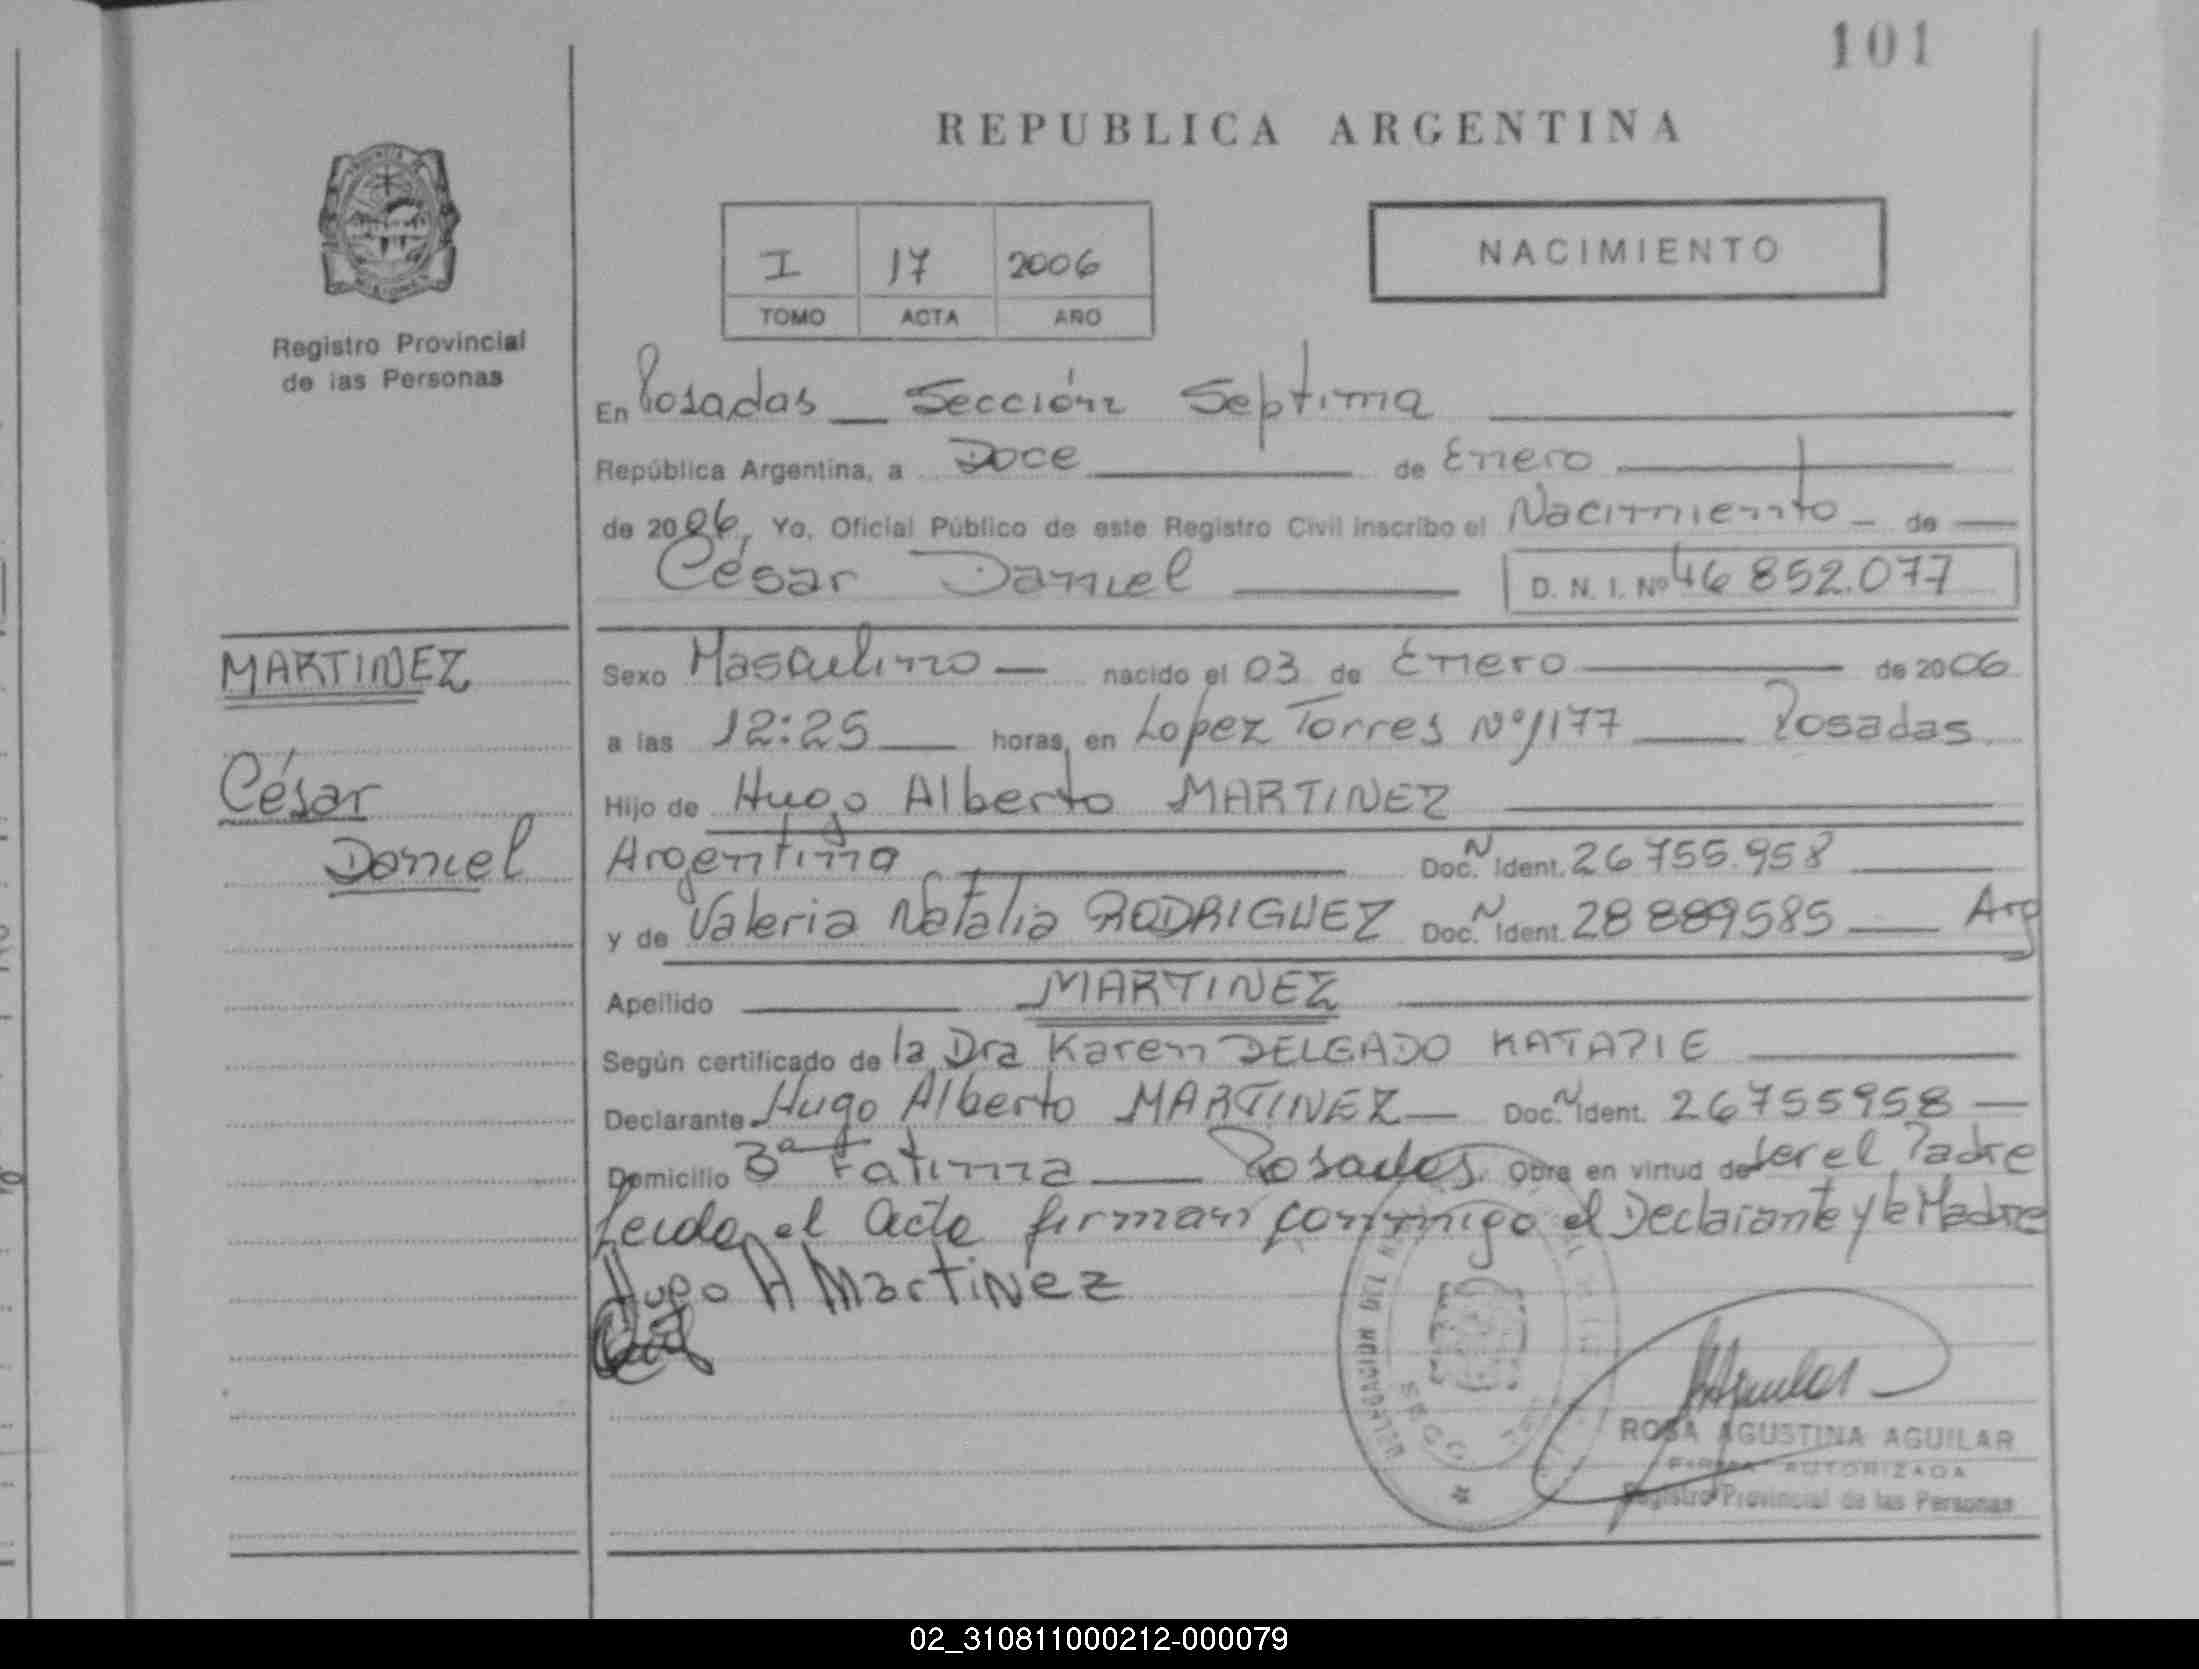 101
REPUBLICA ARGENTINA
Registro Provincial
de las Personas
I 17 2006
TOMO ACTA AÑO
NACIMIENTO
En Posadas _ Sección Septima
República Argentina, a Doce de Enero
de 2006, Yo, Oficial Público de este Registro Civil inscribo el Nacimiento _ de
César Daniel D. N. I. Nº 46 852.077
MARTINEZ
César
Daniel
Sexo Masculino nacido el 03 de Enero de 2006
a las 12:25 horas, en Lopez Torres Nº 1177 Posadas
Hijo de Hugo Alberto MARTINEZ
Argentina Doc. N Ident. 26755.958
y de Valeria Natalia RODRIGUEZ Doc. N Ident. 28889585 Arg
Apellido MARTINEZ
Según certificado de la Dra Karen DELGADO
Declarante Hugo Alberto MARTINEZ Doc. N Ident. 26755958
Domicilio Bº Fatima Posadas Obra en virtud de ser el Padre
Leida el Acta firman conmigo el Declarante y la Madre
Hugo A Martinez
DELEGACION DEL
ROSA AGUSTINA AGUILAR
FIRMA AUTORIZADA
Registro Provincial de las Personas
02_310811000212-000079